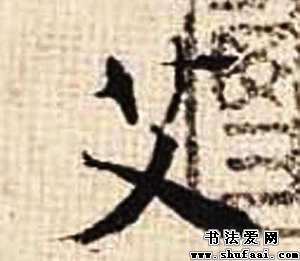 艾
书法爱网
www.shufaai.com